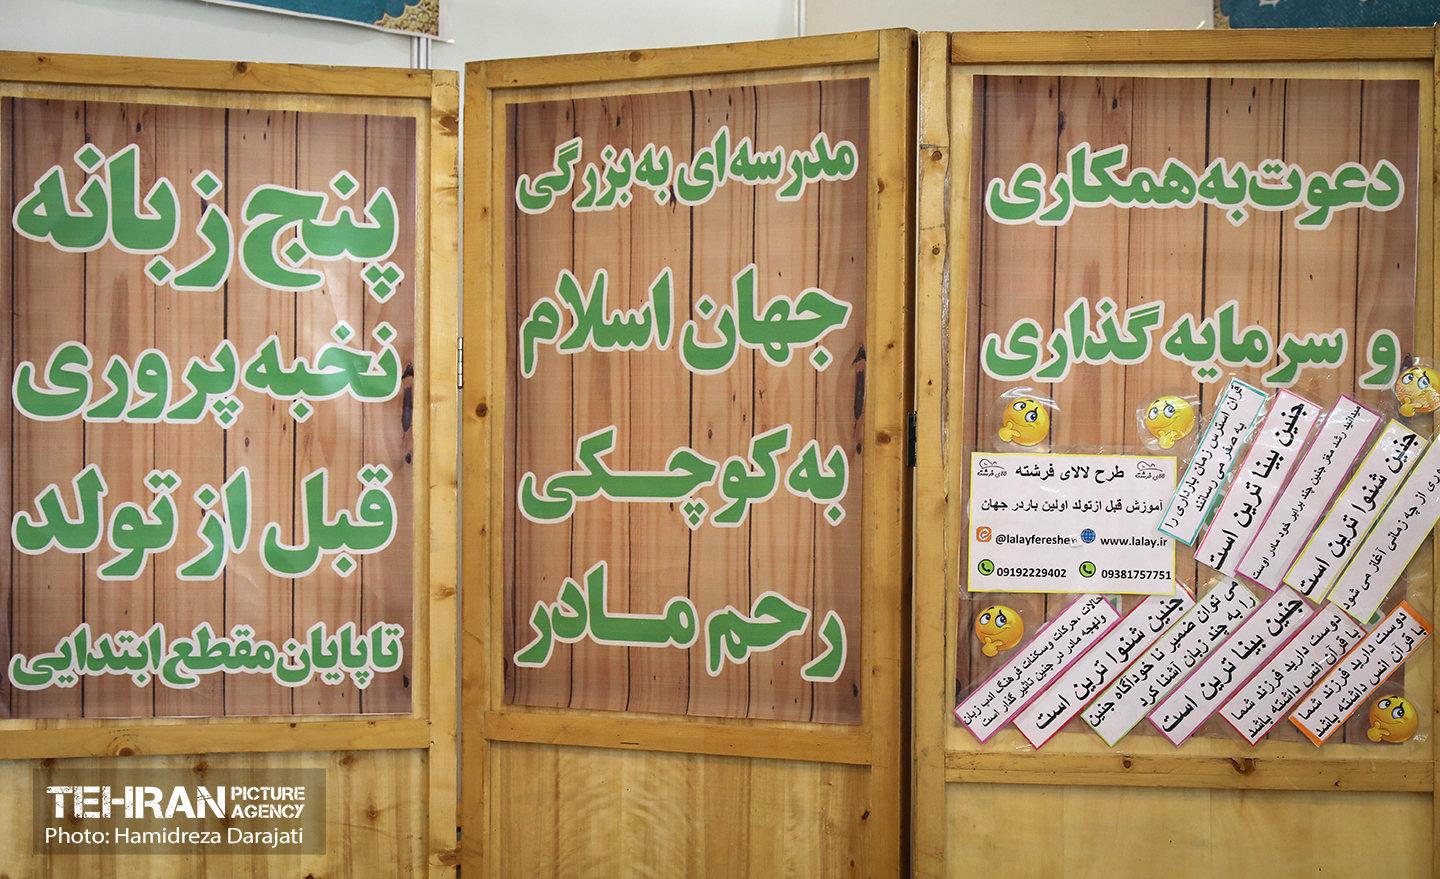 دعوت به همکاری
و سرمایه گذاری
مدرسه ای به بزرگی
جهان اسلام
به کوچکی
رحم مادر
پنج زبانه
نخبه پروری
قبل از تولد
تا پایان مقطع ابتدایی
طرح لالای فرشته
لالای فرشته
لالای فرشته
آموزش قبل ازتولد اولین باردر جهان
@lalayfereshe
www.lalay.ir
09192229402
09381757751
قرآن استرس زمان بارداری را
به صفر می رسانند
جنین بینا ترین است
میدانید رشد مغز جنین چند برابر خود مادر اوست
جنین شنوا ترین است
از چه زمانی آغاز می شود
حالات ،حرکات وسکنات فرهنگ ادب زبان
ولهجه مادر در جنین تاثیر گذار است
جنین شنوا ترین است
می توان ضمیر نا خوداگاه جنین
را به چند زبان آشنا کرد
جنین بینا ترین است
دوست دارید فرزند شما
با قرآن انس داشته باشد
دوست دارید فرزند شما
با قرآن انس داشته باشد
TEHRAN PICTURE AGENCY
Photo: Hamidreza Darajati